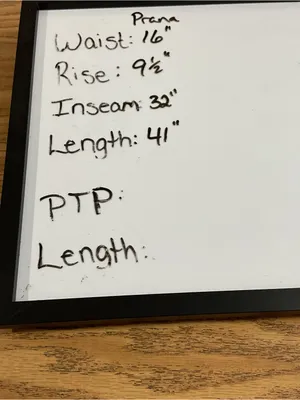 Prana
Waist: 16"
Rise: 9½"
Inseam: 32"
Length: 41"
PTP:
Length: